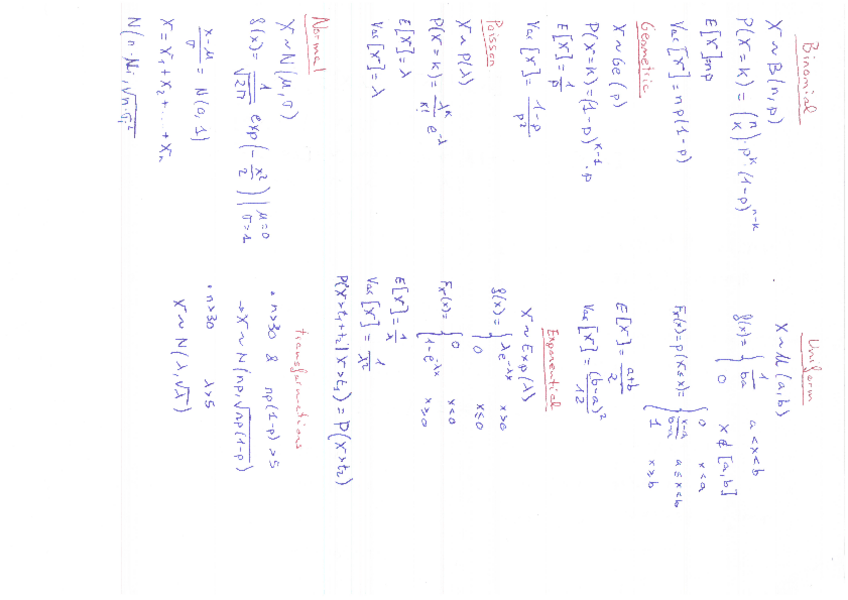 Binomial
X ~ B(n,p)
P(X=k) = (n k) · p^k · (1-p)^(n-k)
E[X]=np
Var[X] = np(1-p)
Geometric
X ~ Ge(p)
P(X=k) = (1-p)^(k-1) · p
E[X] = 1/p
Var[X] = (1-p)/p²
Poisson
X ~ P(λ)
P(X=k) = λ^k/k! e^(-λ)
E[X] = λ
Var[X] = λ
Normal
X ~ N(μ,σ)
f(x) = 1/√(2π) exp(-x²/2) | μ=0 σ=1
(x-μ)/σ = N(0,1)
X = X₁ + X₂ + ... + Xₙ
N(n·μᵢ, √(n·σᵢ²))
Uniform
X ~ U(a,b)
f(x) = { 1/ba a<x<b
0 x∉[a,b]
Fx(x) = p(X≤x) = { 0 x<a
(x-a)/(b-a) a≤x<b
1 x≥b
E[X] = (a+b)/2
Var[X] = (b-a)²/12
Exponential
X ~ Exp(λ)
f(x) = { λe^(-λx) x>0
0 x≤0
Fx(x) = { 0 x<0
1-e^(-λx) x≥0
E[X] = 1/λ
Var[X] = 1/λ²
P(X>t₁+t₂|X>t₁) = P(X>t₂)
transformations
• n>30 & np(1-p) >5
→ X ~ N(np, √(np(1-p)))
• n>30 λ>5
X ~ N(λ,√λ)